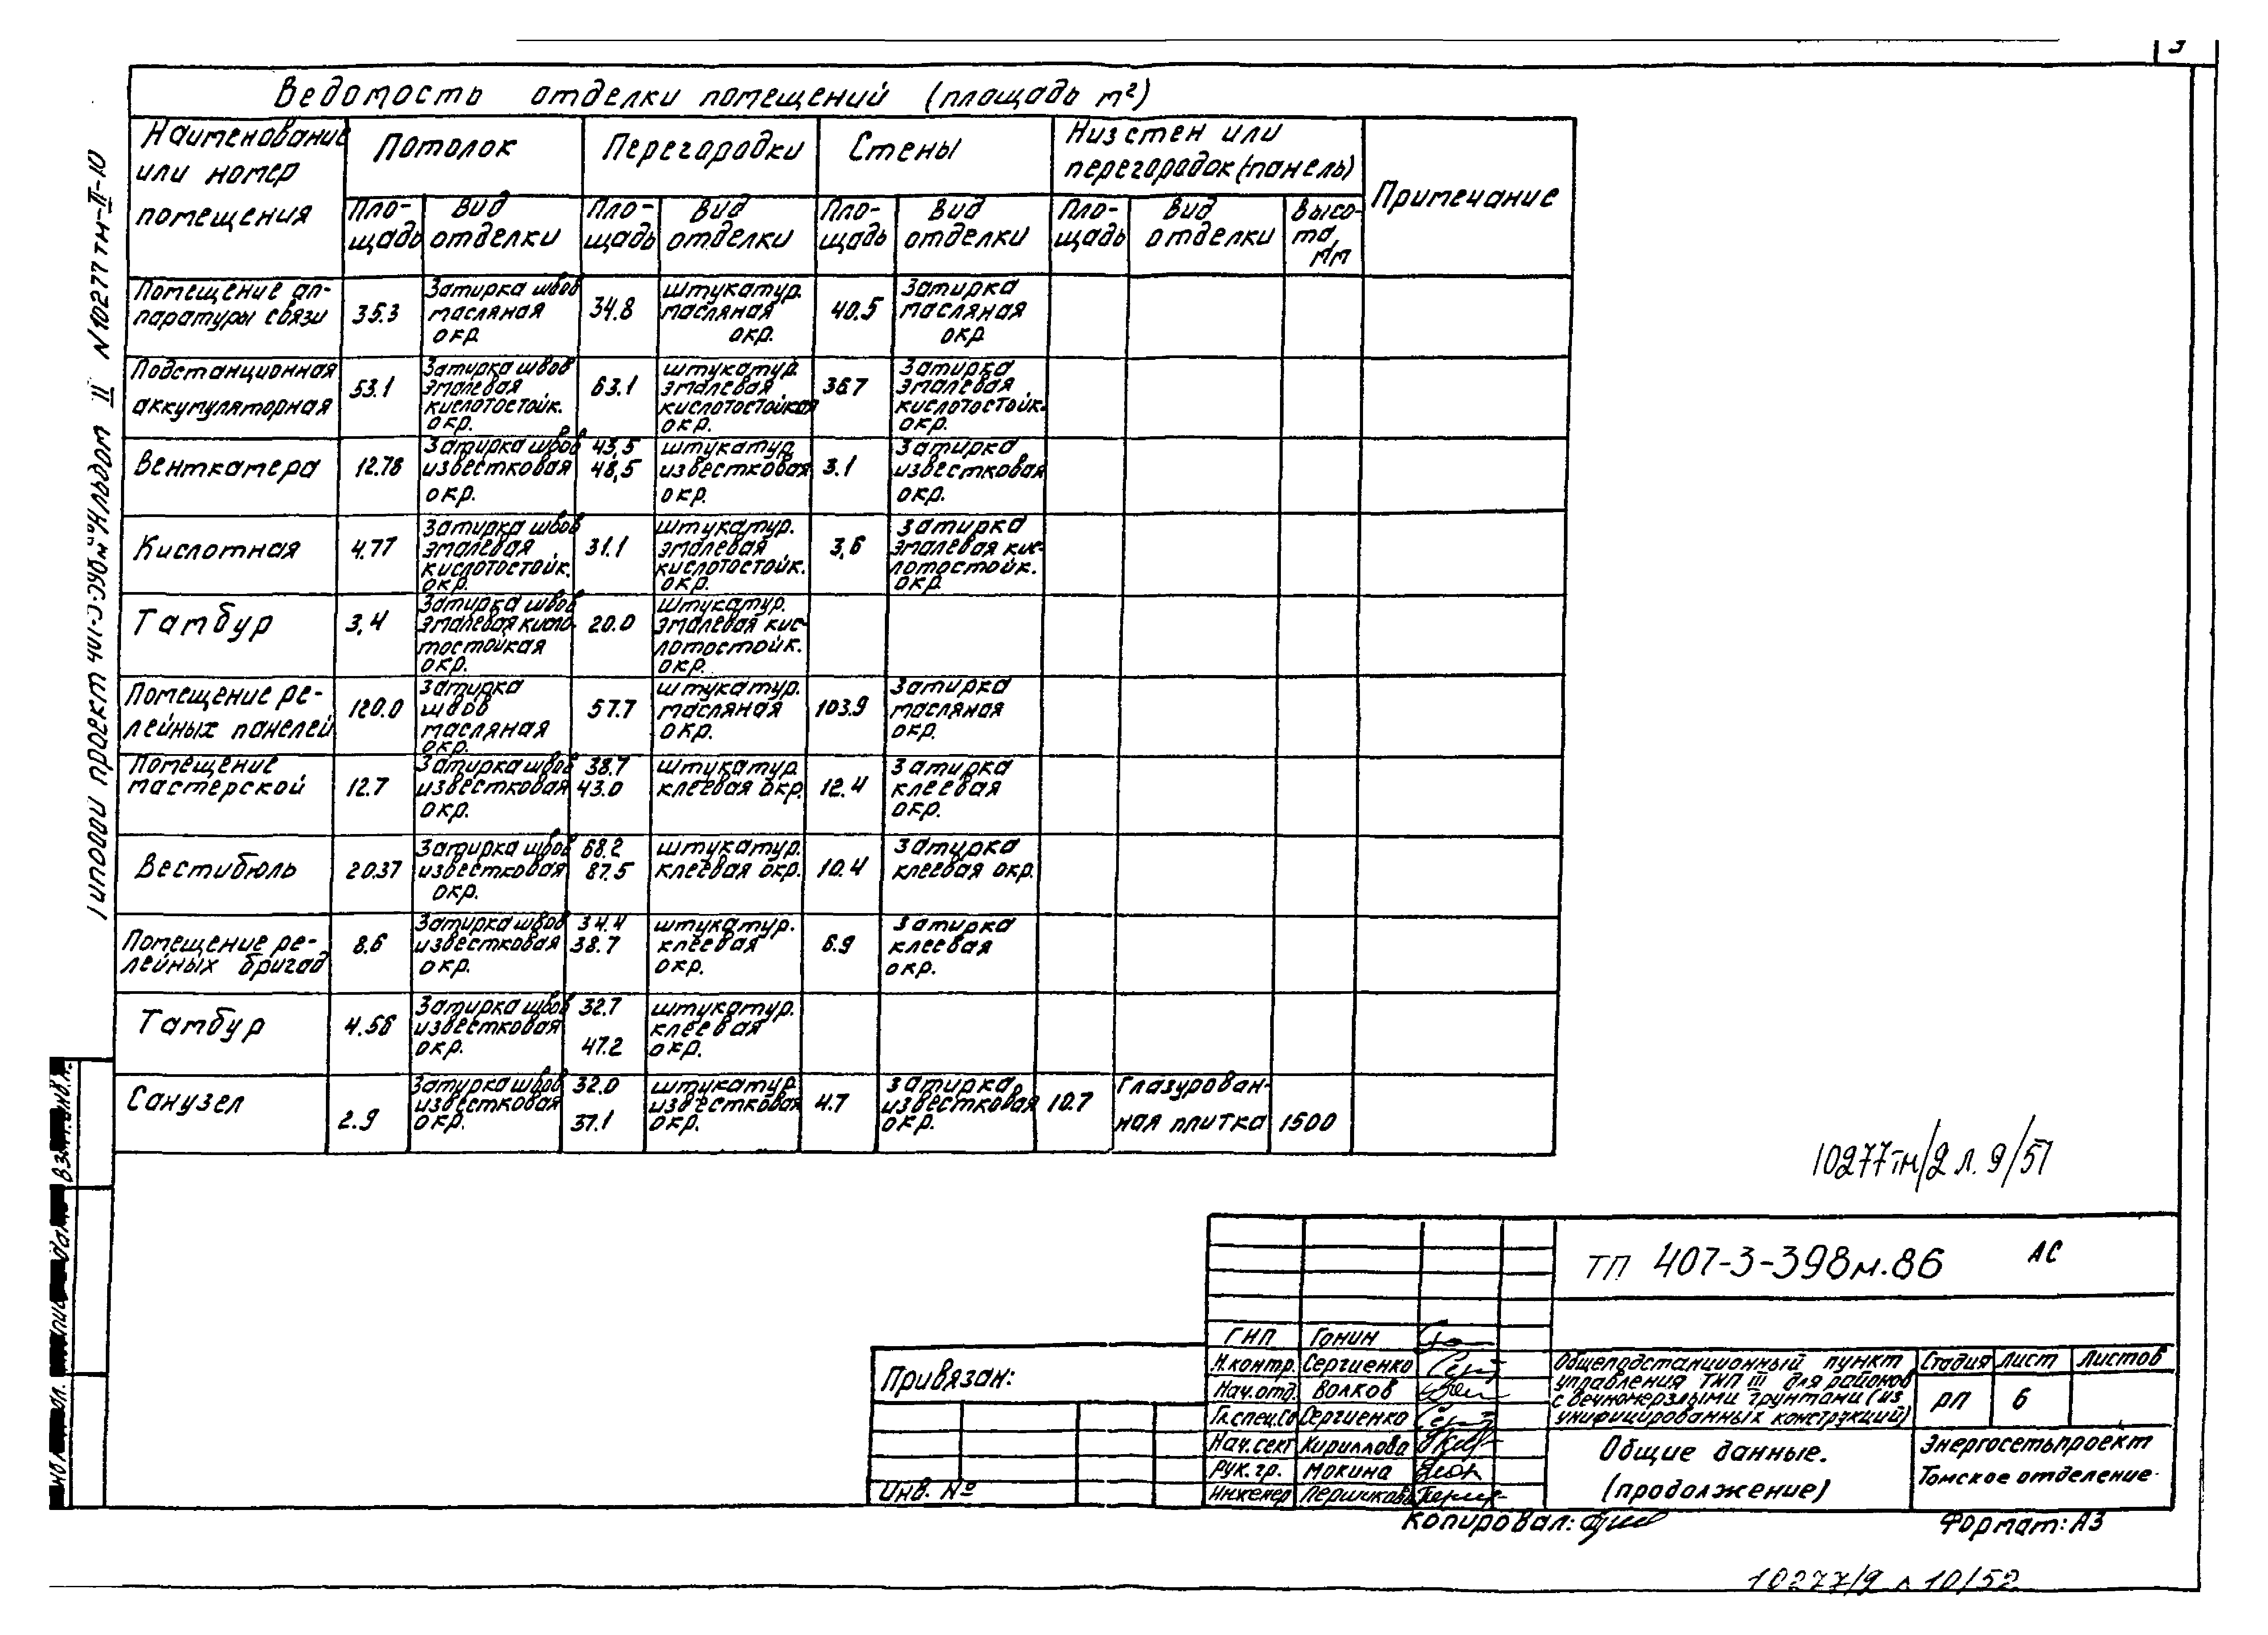 Ведомость отделки помещений (площадь м²)
Наименование или номер помещения
Потолок
Перегородки
Стены
Низ стен или перегородок (панель)
Примечание
Пло-щадь
Вид отделки
Пло-щадь
Вид отделки
Пло-щадь
Вид отделки
Пло-щадь
Вид отделки
Высо-та, мм
Помещение ап-паратуры связи
35.3
Затирка швов масляная окр.
34.8
штукатур. масляная окр.
40.5
Затирка масляная окр
Подстанционная аккумуляторная
53.1
Затирка швов эмалевая кислотостойк. окр.
63.1
штукатур. эмалевая кислотостойкая окр.
36.7
Затирка эмалевая кислотостойк. окр.
Венткамера
12.78
Затирка швов известковая окр.
43,5
48,5
штукатур. известковая окр.
3.1
Затирка известковая окр.
Кислотная
4.77
Затирка швов эмалевая кислотостойк. окр.
31.1
штукатур. эмалевая кислотостойк. окр.
3,6
Затирка эмалевая кис-лотостойк. окр.
Тамбур
3,4
Затирка швов эмалевая кисло-тостойкая окр.
20.0
штукатур. эмалевая кис-лотостойк. окр.
Помещение ре-лейных панелей
120.0
Затирка швов масляная окр.
57.7
штукатур. масляная окр.
103.9
Затирка масляная окр.
Помещение мастерской
12.7
Затирка швов известковая окр.
38.7
43.0
штукатур. клеевая окр.
12.4
Затирка клеевая окр.
Вестибюль
20.37
Затирка швов известковая окр.
68.2
87.5
штукатур. клеевая окр.
10.4
Затирка клеевая окр.
Помещение ре-лейных бригад
8.6
Затирка швов известковая окр.
34.4
38.7
штукатур. клеевая окр.
6.9
Затирка клеевая окр.
Тамбур
4.56
Затирка швов известковая окр.
32.7
47.2
штукатур. клеевая окр.
Санузел
2.9
Затирка швов известковая окр.
32.0
37.1
штукатур. известковая окр.
4.7
Затирка известковая окр.
10.7
Глазурован-ная плитка
1500
Типовой проект 407-3-398м Альбом II N10277тм-II-10
10277тм/2 л. 9/51
ТП 407-3-398м.86 АС
ГИП Гонин
Н.контр. Сергиенко
Нач.отд. Волков
Гл.спец.Со Сергиенко
Нач.сект Кириллова
Рук.гр. Мокина
Инженер
Общеподстанционный пункт
управления ТИП III для районов
с вечномерзлыми грунтами (из
унифицированных конструкций)
Стадия Лист Листов
РП 6
Общие данные.
(продолжение)
Энергосетьпроект
Томское отделение
Привязан:
Инв. №
Копировал:
Формат: А3
10277/2 л 10/52